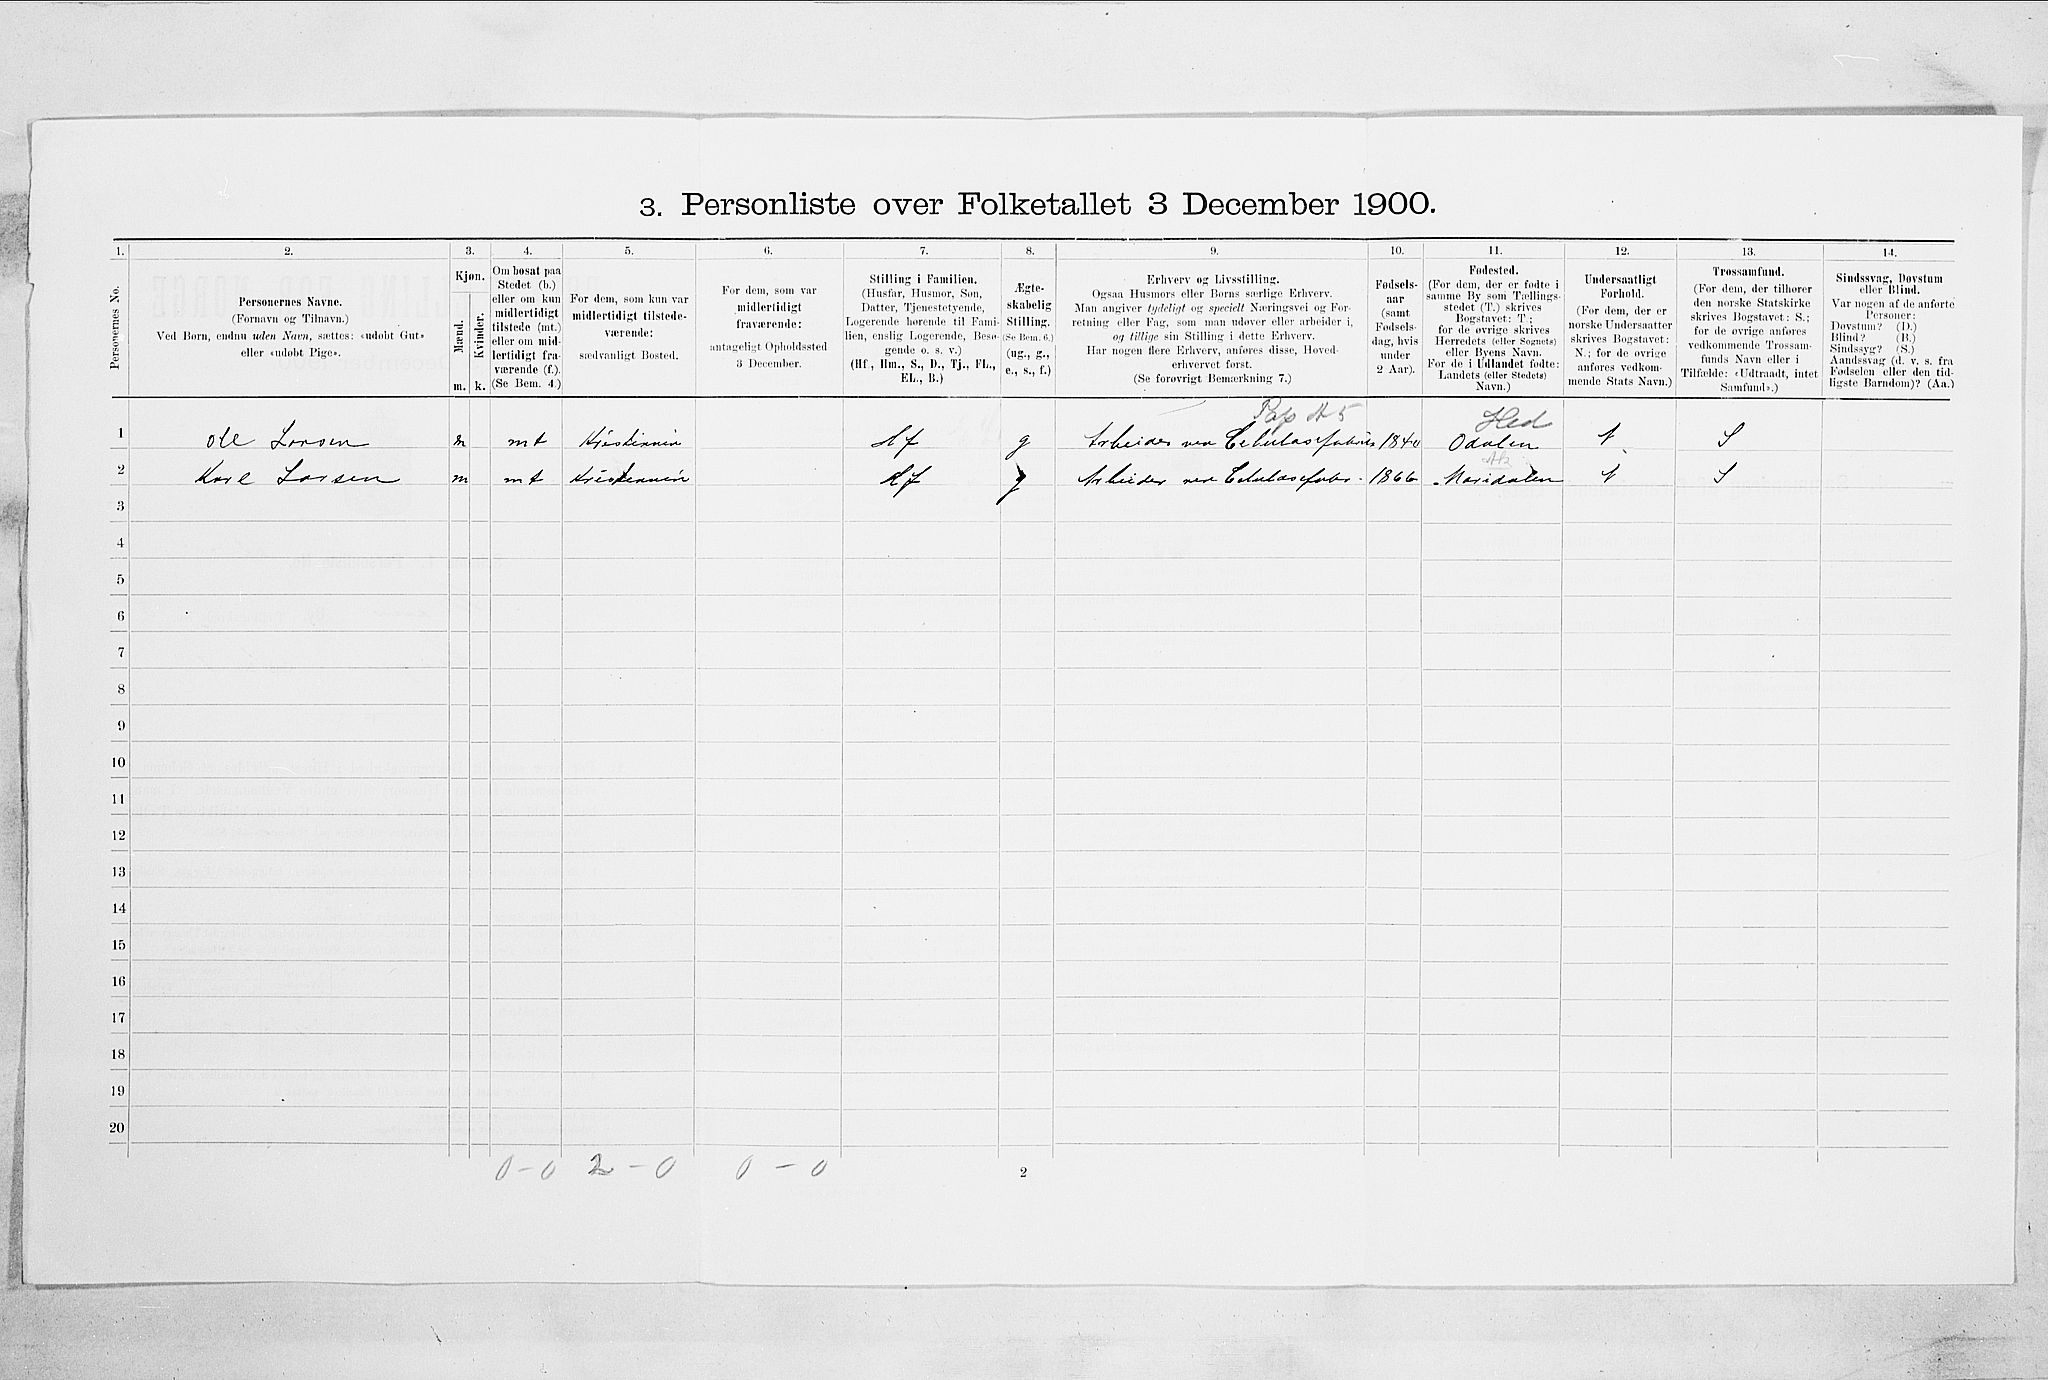 3. Personliste over Folketallet 3 December 1900.
1. 2. 3. 4. 5. 6. 7. 8. 9. 10. 11. 12. 13. 14.
Personernes No.
Personernes Navne.
(Fornavn og Tilnavn.)
Ved Børn, endnu uden Navn, sættes: «udøbt Gut»
eller «udøbt Pige».
Kjøn.
Mænd.
Kvinder.
m. k.
Om bosat paa
Stedet (b.)
eller om kun
midlertidigt
tilstede (mt.)
eller om mid-
lertidigt fra-
værende (f.)
(Se Bem. 4.)
For dem, som kun var
midlertidigt tilstede-
værende:
sædvanligt Bosted.
For dem, som var
midlertidigt
fraværende:
antageligt Opholdssted
3 December.
Stilling i Familien.
(Husfar, Husmor, Søn,
Datter, Tjenestetyende,
Logerende hørende til Fami-
lien, enslig Logerende, Besø-
gende o. s. v.)
(Hf., Hm., S., D., Tj., FL.,
EL., B.)
Ægte-
skabelig
Stilling.
(Se Bem. 6.)
(ug., g.,
e., s., f.)
Erhverv og Livsstilling.
Ogsaa Husmors eller Børns særlige Erhverv.
Man angiver tydeligt og specielt Næringsvei og For-
retning eller Fag, som man udøver eller arbeider i,
og tillige sin Stilling i dette Erhverv.
Har nogen flere Erhverv, anføres disse, Hoved-
erhvervet først.
(Se forøvrigt Bemærkning 7.)
Fødsels-
aar
(samt
Fødsels-
dag, hvis
under
2 Aar).
Fødested.
(For dem, der er fødte i
samme By som Tællings-
stedet (T.) skrives
Bogstavet: T.;
for de øvrige skrives
Herredets (eller Sognets)
eller Byens Navn.
For de i Udlandet fødte:
Landets (eller Stedets)
Navn.)
Undersaatligt
Forhold.
(For dem, der er
norske Undersaatter
skrives Bogstavet:
N.; for de øvrige
anføres vedkom-
mende Stats Navn.)
Trossamfund.
(For dem, der tilhører
den norske Statskirke
skrives Bogstavet: S.;
for de øvrige anføres
vedkommende Trossam-
funds Navn eller i
Tilfælde: «Udtraadt, intet
Samfund».)
Sindssvag, Døvstum
eller Blind.
Var nogen af de anførte
Personer:
Døvstum? (D.)
Blind? (B.)
Sindssyg? (S.)
Aandssvag (d. v. s. fra
Fødselen eller den tid-
ligste Barndom)? (Aa.)
Pap A 5 Hed
1 Ole Larsen m mt Kristiania Hf g Arbeider ved Celulosefabrik 1840 Odalen N S
2 Karl Larsen m mt Kristiania Hf g Arbeider ved Celulosefabr. 1866 Maridalen N S
3
4
5
6
7
8
9
10
11
12
13
14
15
16
17
18
19
20
0-0 2-0 0-0 2